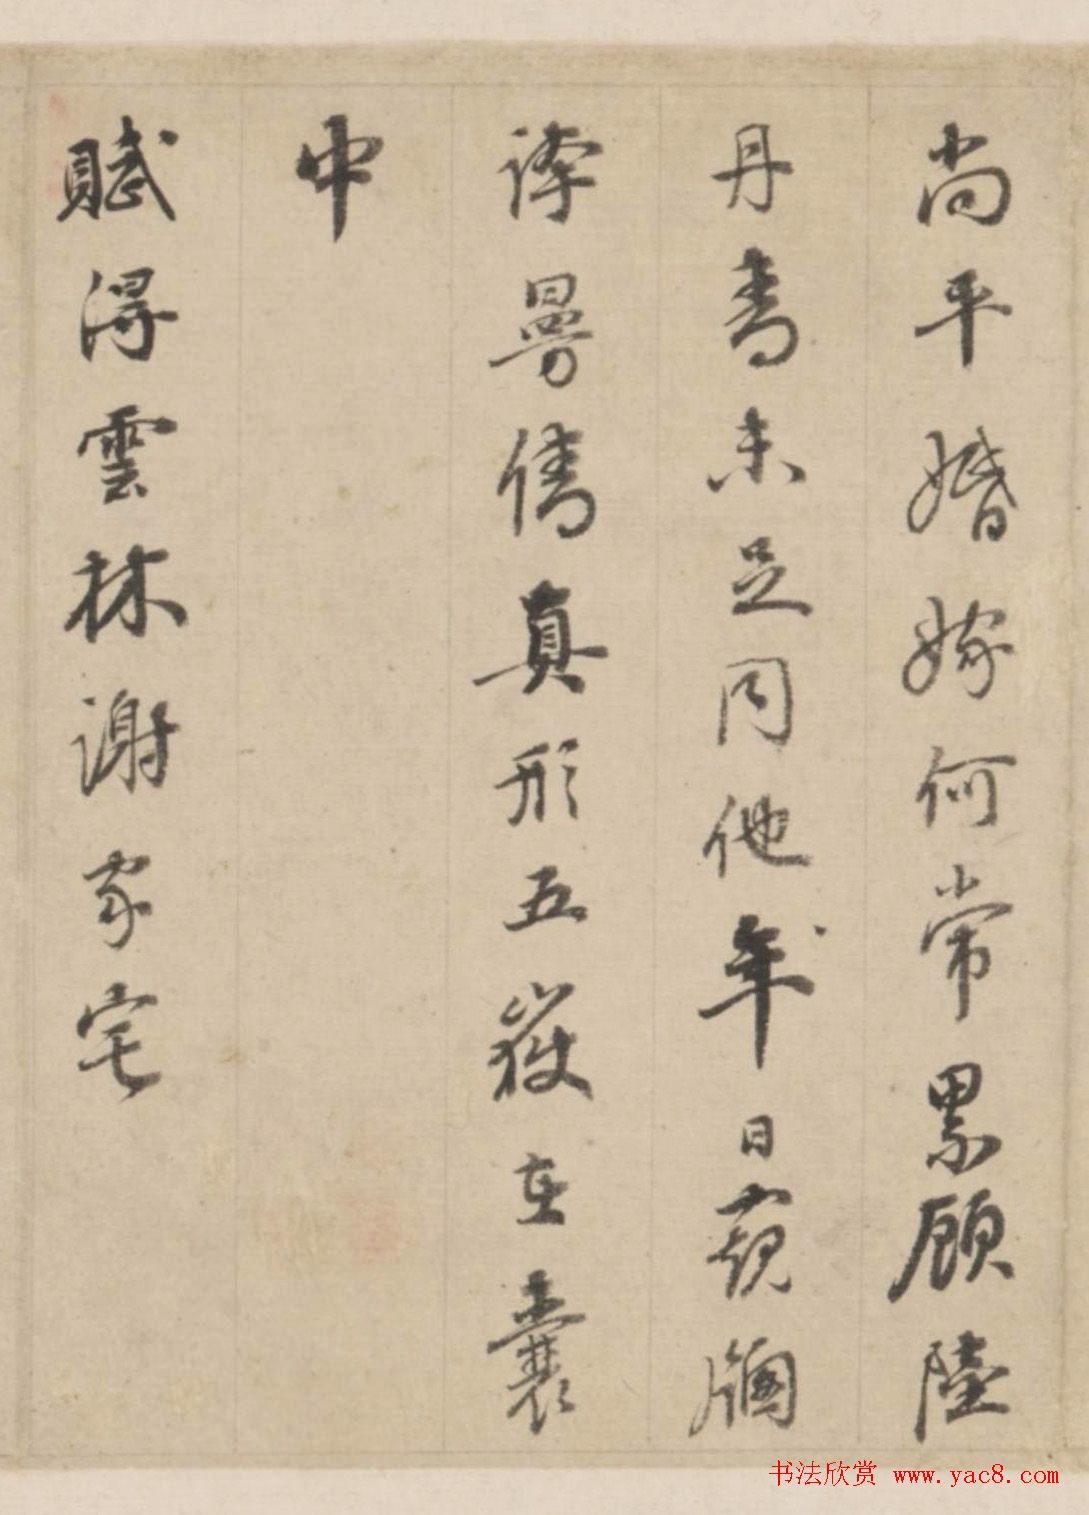 尚平婚嫁何常累顧陸
丹青未足同他年日窺牖
誇曼倩真形五嶽在囊
中
賦得雲林謝家宅
书法欣赏 www.yac8.com